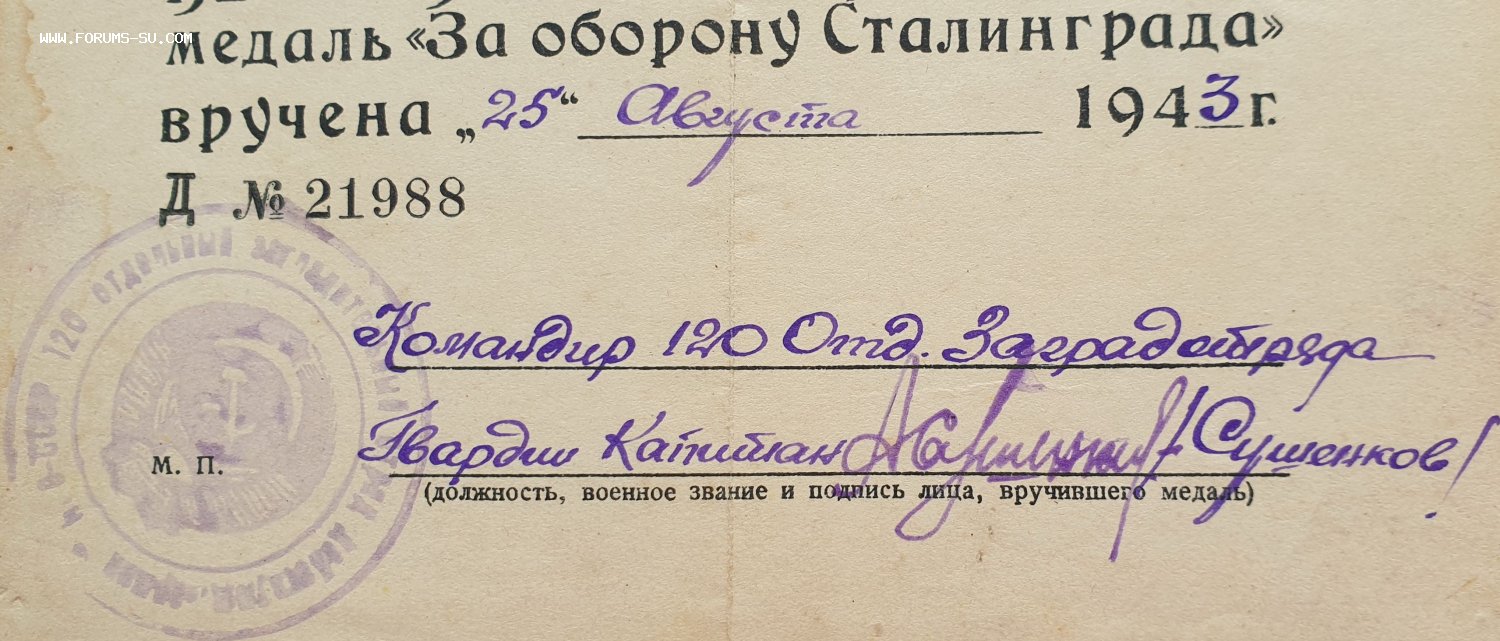 WWW.FORUMS-SU.COM
медаль «За оборону Сталинграда»
вручена „25“ Августа 1943 г.
Д № 21988
120 ОТДЕЛЬНЫЙ
Командир 120 Отд. Заградотряда
Гвардии Капитан /Сушенков/
М. П.
(должность, военное звание и подпись лица, вручившего медаль)